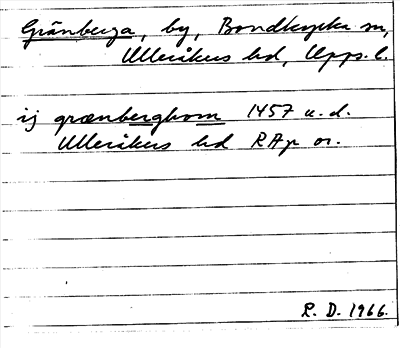 Gränberga, by, Bondkyrka sn,
Ulleråkers hd, Upps. l.
ij grænberghom 1457 u. d.
Ulleråkers hd RAp or.
R. D. 1966.